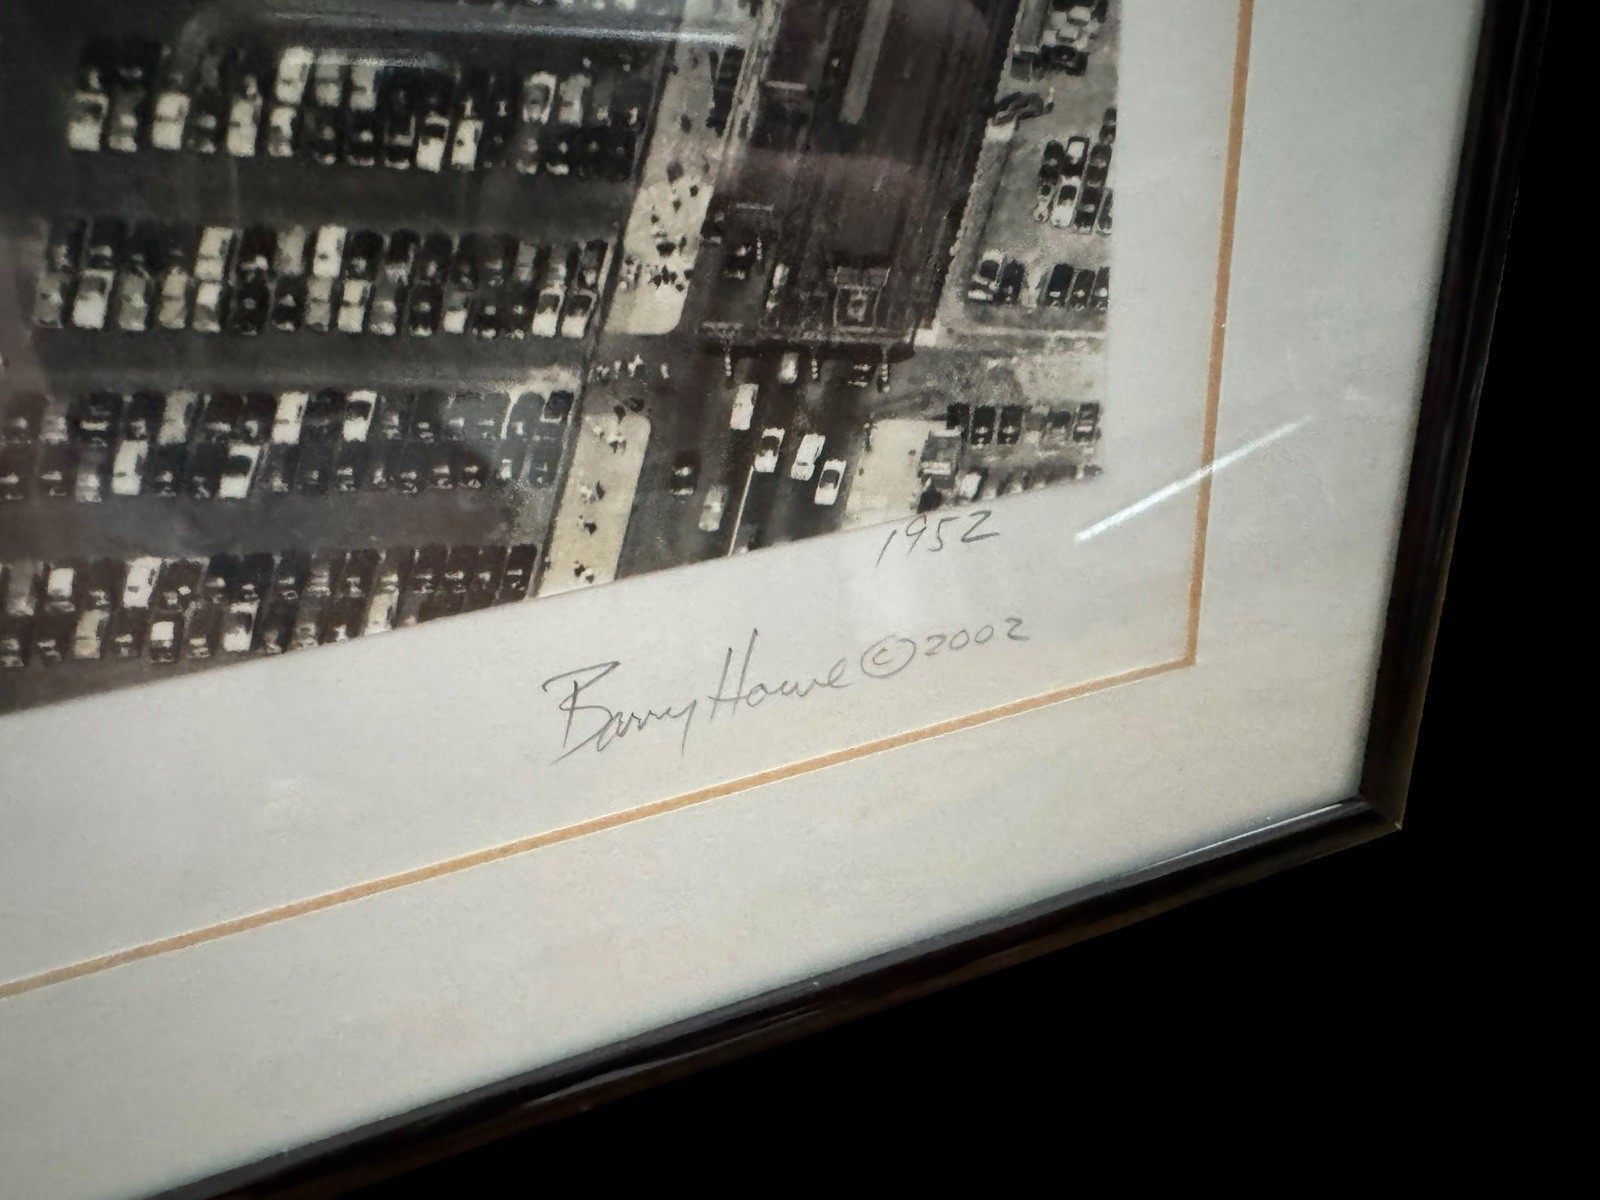 1952
Barry Howe © 2002